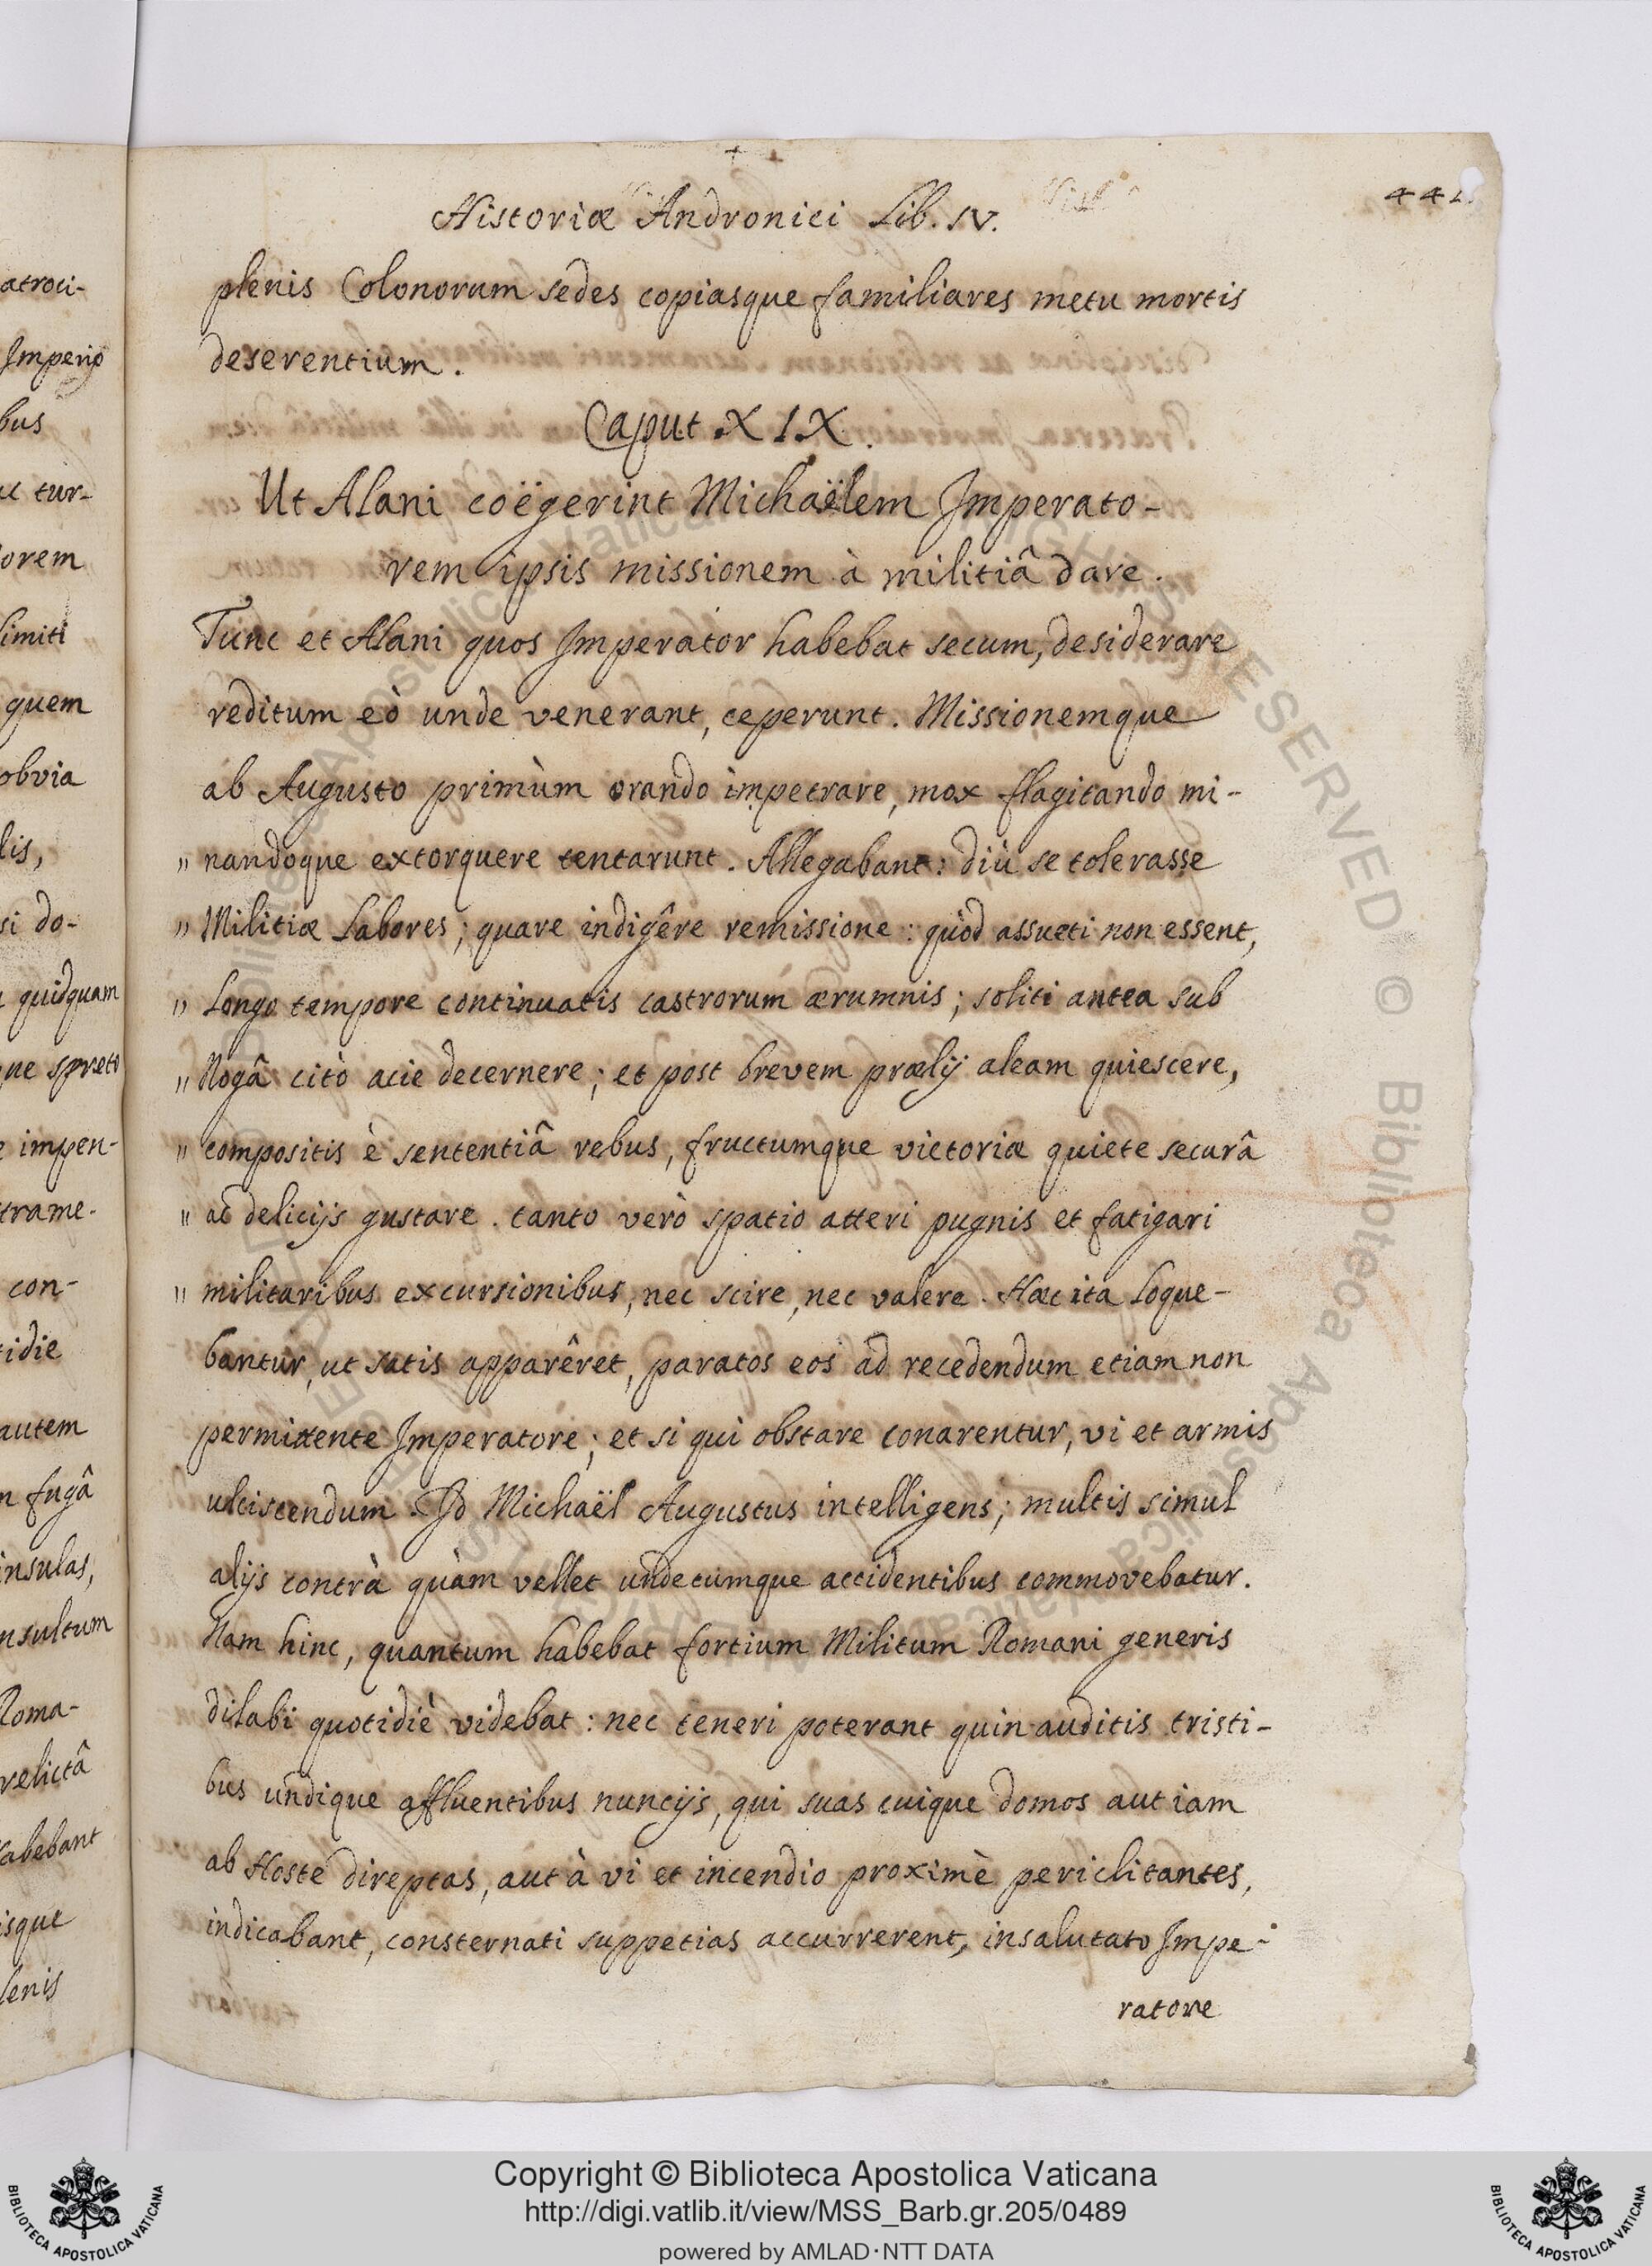 atroci-
Imperio
bus
tur-
orem
limiti
quem
obvia
lis,
si do-
quidquam
ne spreto
impen-
trame-
con-
tidie
autem
fugâ
insulas,
nsultum
Roma-
relictâ
abebant
isque
lenis
Historiæ Andronici Lib. IV.
441
plenis Colonorum sedes copiasque familiares metu mortis
deserentium.
Caput XIX.
Ut Alani coëgerint Michaëlem Imperato-
rem ipsis missionem à militiâ dare.
Tunc et Alani quos Imperator habebat secum, desiderare
reditum eò unde venerant, ceperunt. Missionemque
ab Augusto primùm orando impetrare, mox flagitando mi-
" nandoque extorquere tentarunt. Allegabant: diù se tolerasse
" Militiæ Labores; quare indigêre remissione: quòd assueti non essent,
" Longo tempore continuatis castrorum ærumnis; soliti antea sub
" Nogâ citò acie decernere; et post brevem prælij aleam quiescere,
" compositis è sententiâ rebus, fructumque victoriæ quiete securâ
" ac delicijs gustare. tanto verò spatio atteri pugnis et fatigari
" militaribus excursionibus, nec scire, nec valere. Hæc ita loque-
bantur, ut satis apparêret, paratos eos ad recedendum etiam non
permittente Imperatore; et si qui obstare conarentur, vi et armis
ulciscendum. Id Michaël Augustus intelligens; multis simul
alijs contrà quàm vellet undecumque accidentibus commovebatur.
Nam hinc, quantum habebat fortium Militum Romani generis
dilabi quotidiè videbat: nec teneri poterant quin auditis tristi-
bus undique affluentibus nuncijs, qui suas cuique domos aut iam
ab Hoste direptas, aut à vi et incendio proximè periclitantes,
indicabant, consternati suppetias accurrerent, insalutato Impe-
ratore
Copyright © Biblioteca Apostolica Vaticana
http://digi.vatlib.it/view/MSS_Barb.gr.205/0489
powered by AMLAD・NTT DATA
BIBLIOTECA APOSTOLICA VATICANA
BIBLIOTECA APOSTOLICA VATICANA